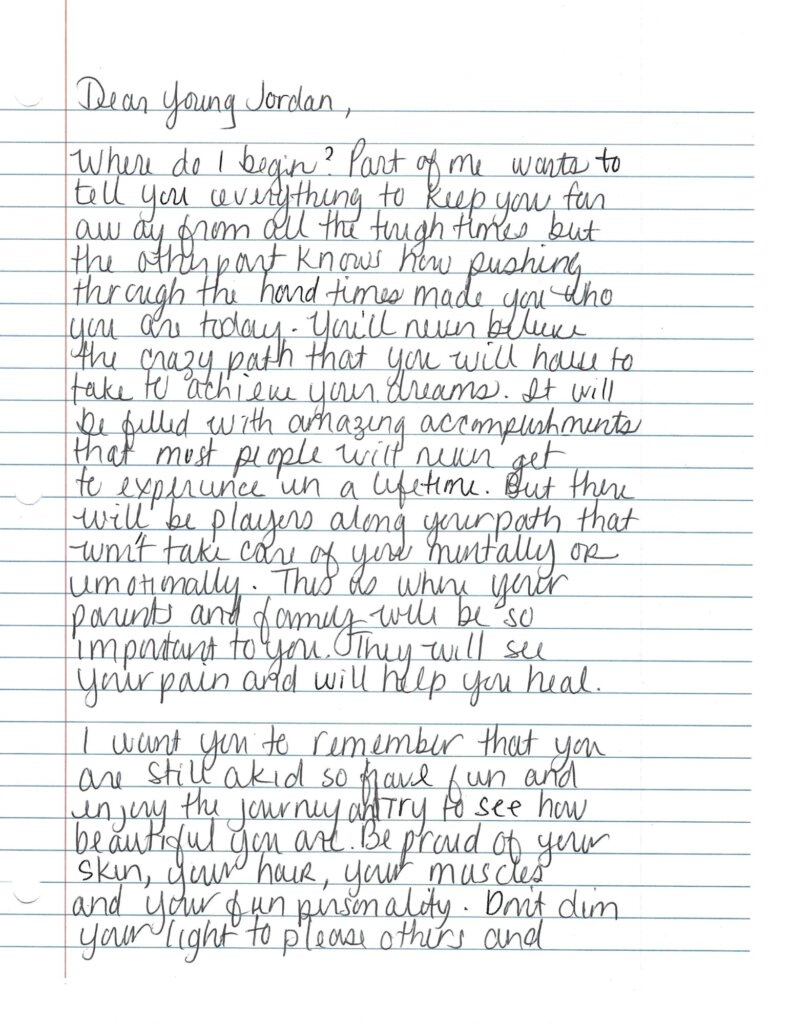 Dear Young Jordan,
Where do I begin? Part of me wants to
tell you everything to keep you far
away from all the tough times but
the other part knows how pushing
through the hard times made you who
you are today. You'll never believe
the crazy path that you will have to
take to achieve your dreams. It will
be filled with amazing accomplishments
that most people will never get
to experience in a lifetime. But there
will be players along your path that
won't take care of you mentally or
emotionally. This is where your
parents and family will be so
important to you. They will see
your pain and will help you heal.
I want you to remember that you
are still a kid so have fun and
enjoy the journey and Try to see how
beautiful you are. Be proud of your
skin, your hair, your muscles
and your fun personality. Don't dim
your light to please others and